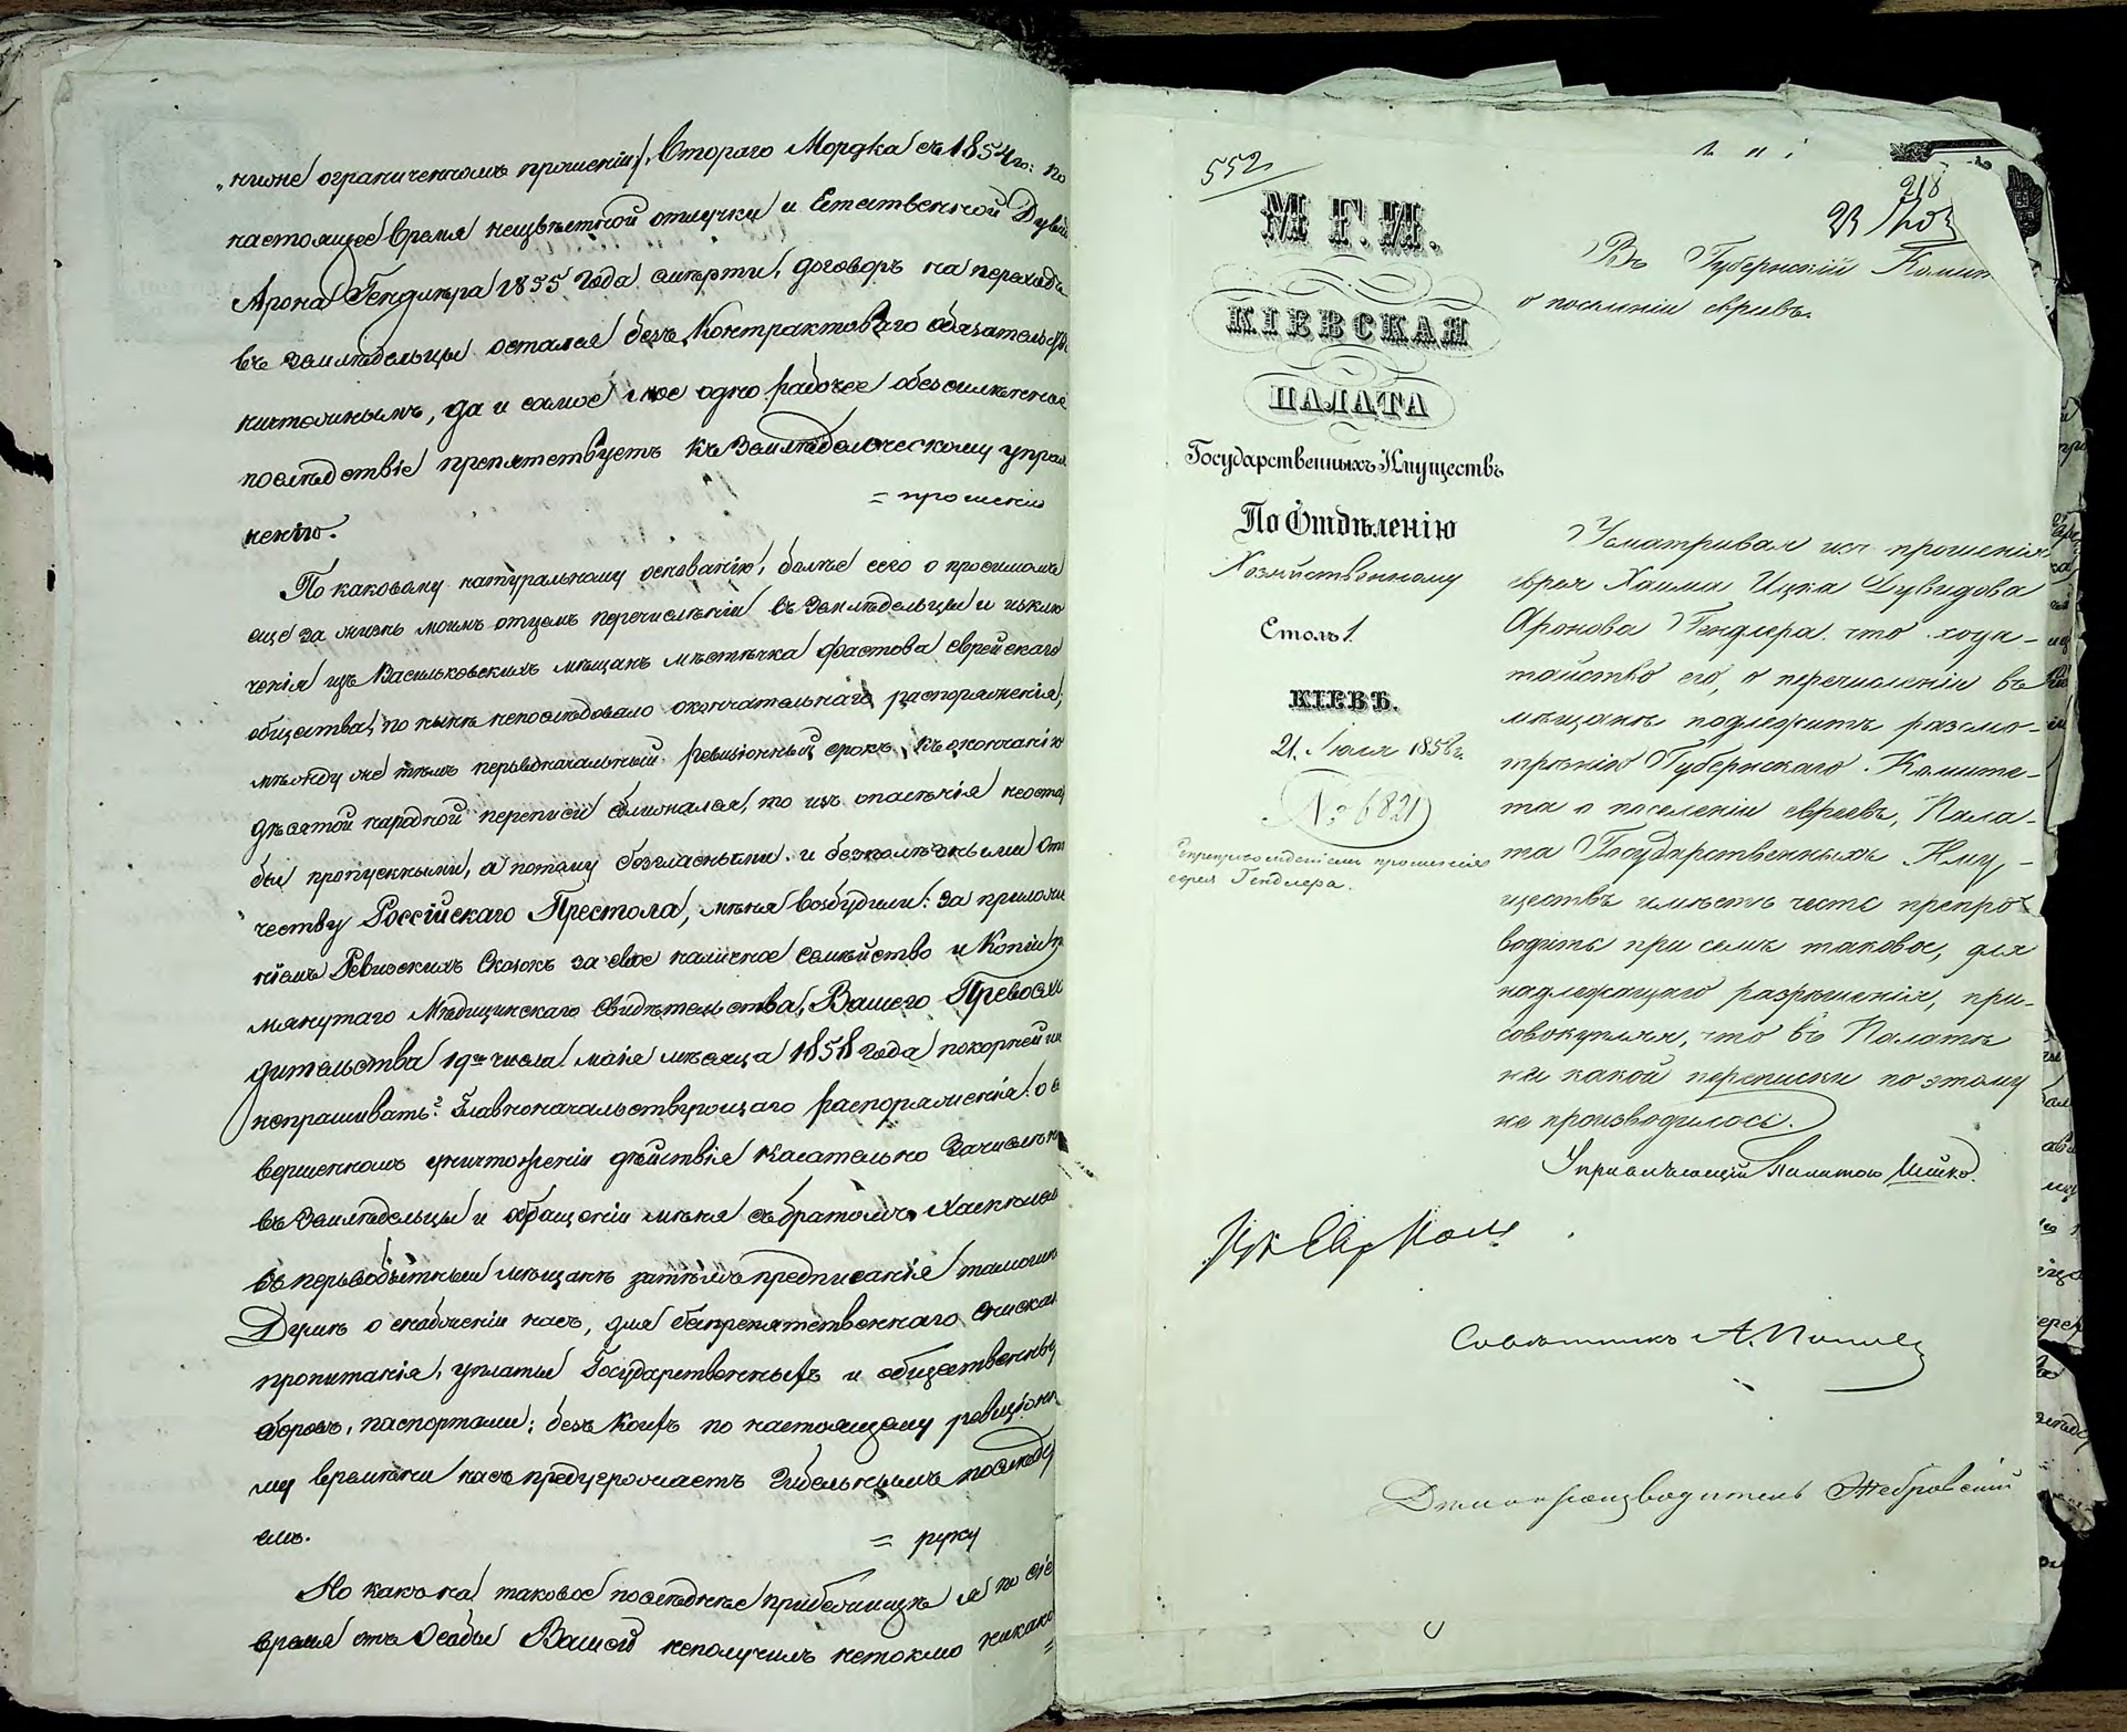 нионе ограниченномъ прошеніи/, Втораго Мордка съ 1854го: по
настоящее время неизвѣстной отлучки и Естественной Дуви
Арона Гендлѣра 1855 года смерти, договоръ на переходъ
въ Землѣдельцы остался безъ Контрактоваго обязательств
ничтожнымъ, да и самое мое одно рабочее обезсилѣнное
послѣдствіе препятствуетъ къ Землѣдельческому управ
= прошенію
ненію.
По каковому натуральному основанію, болѣе сего о просимомъ
еще за жизнь моимъ отцемъ перечислѣніи въ Землѣдельцы и исклю
ченія изъ Васильковскихъ мѣщанъ мѣстѣчка Фастова еврейскаго
общества, по нынѣ непослѣдовало окончательнаго распоряженія;
мѣжду же тѣмъ первоначальный ревизіонный срокъ, къ окончанію
дѣсятой народной переписи сближался, то изъ опасѣнія неоста
бы пропускными, а потому безгласными и безполѣзными Оте
честву Россійскаго Престола, мѣня возбудили: за приложе
ніемъ Ревизскихъ Сказокъ за свое наличное Семѣйство и Копіи
мянутаго Мѣдицинскаго Свидѣтельства, Вашего Превосхо
дительства 19го числа маія мѣсяца 1858 года покорнейше
испрашивать: Главноначальствующаго распоряженія: о со
вершенномъ уничтоженіи дѣйствія касательно Зачислѣн
въ Землѣдельцы и обращеніи мѣня съ братомъ Хаскѣлемъ
въ первобытныи мѣщанъ затѣмъ предписанія тамошн
Думѣ о снабженіи насъ, для безпрепятственнаго снискан
пропитанія, уплаты Государственныхъ и общественны
сборовъ, паспортами: безъ коихъ по настоящему ревизіонн
му времѣни насъ предугрожаетъ гибельнымъ послѣдс
емъ.
= руку
Но какъ на таковое послѣднѣе прибежище я по сіе
время отъ Особы Вашей неполучилъ нетокмо никако
552
218
М Г. И.
КІЕВСКАЯ
ПАЛАТА
Государственныхъ Имуществъ
По Отдѣленію
Хозяйственному
Столъ 1.
КІЕВЪ.
21 Іюля 1858 г.
№ 6821
Съ препровожденіемъ прошенія
еврея Гендлера.
Въ Губернскій Комит
о поселеніи евреевъ.
Усматривая изъ прошенія
еврея Хаима Ицка Дувидова
Аронова Гендлера. что хода-
тайство его, о перечисленіи въ
мѣщане подлежитъ разсмо-
трѣнію Губернскаго Комите-
та о поселеніи евреевъ, Пала-
та Государственныхъ Иму-
ществъ имѣетъ честь препро-
водить при семъ таковое, для
надлежащаго разрѣшенія, при-
совокупляя, что въ Палатѣ
ни какой переписки по этому
не производилось.
Управляющій Палатою
Совѣтникъ А.
Дѣлопроизводитель Жебровскій